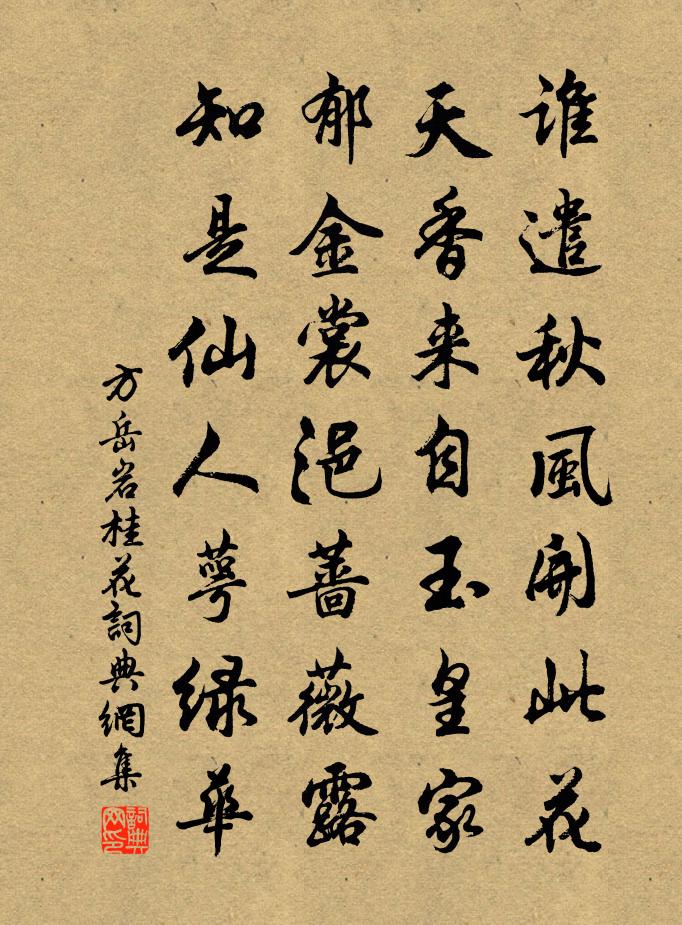 谁遣秋風開此花
天香来自玉皇家
郁金裳浥蔷薇露
知是仙人萼绿華
方岳岩桂花詞典網集
詞典網印